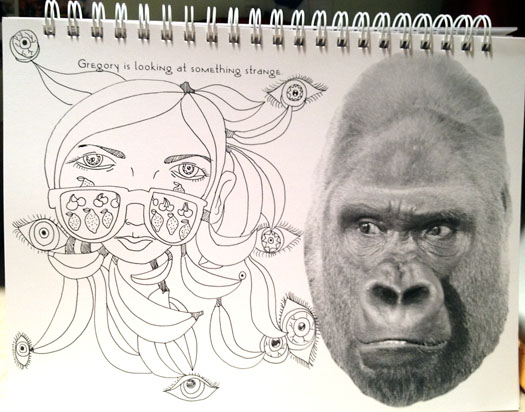 Gregory is looking at something strange